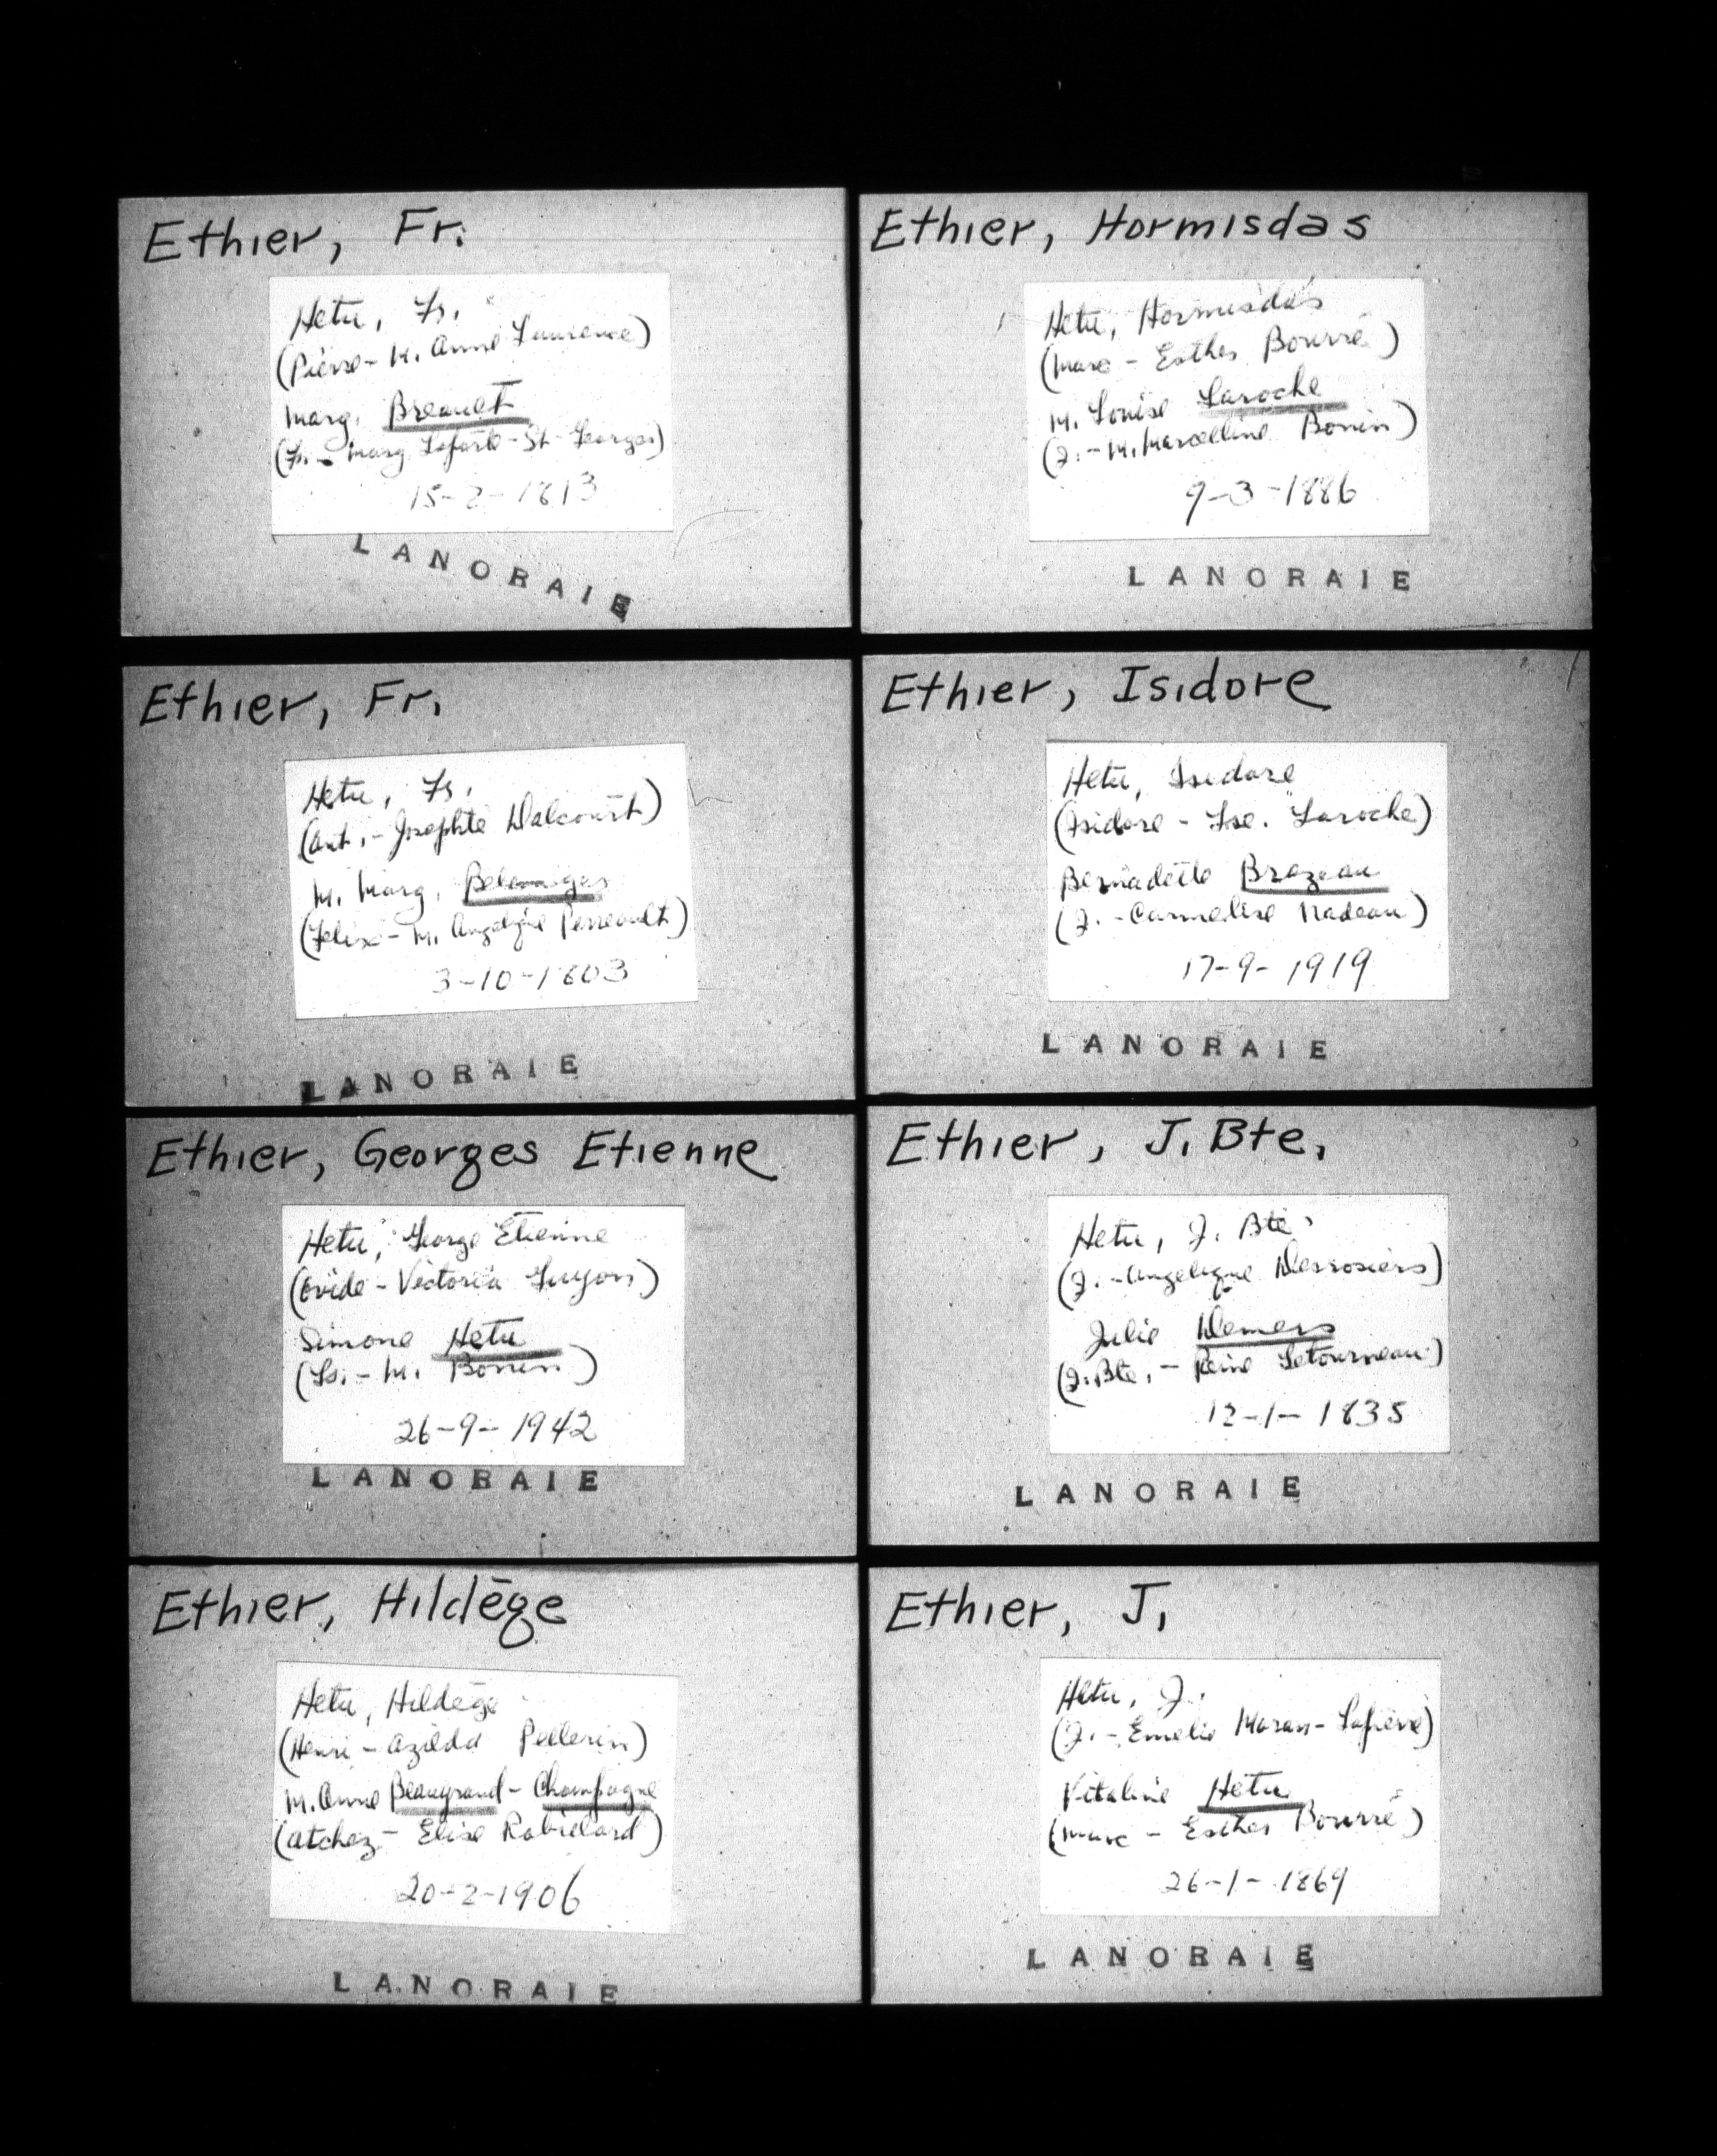 Ethier, Fr.
Hetu, Fs.
(Pierre - M. Anne Laurence)
Marg. Breault
(Fs. - Marg. Laforte - St-Georges)
15-2-1813
LANORAIE
Ethier, Fr.
Hetu, Fs.
(Ant. - Josephte Dalcourt)
M. Marg.
(Felix - M. Angelique Perreault)
3-10-1803
LANORAIE
Ethier, Georges Etienne
Hetu, George Etienne
(Ovide - Victoria Guyon)
Simone Hetu
(Ls. - M. Bonin)
26-9-1942
LANORAIE
Ethier, Hildège
Hetu, Hildège
(Henri - Azilda Pellerin)
M. Anne Beaugrand - Champagne
(Atchez - Elise Robillard)
20-2-1906
LANORAIE
Ethier, Hormisdas
Hetu, Hormisdas
(Marc - Esther Bourré)
M. Louise Laroche
(J. - M. Marcelline Bonin)
9-3-1886
LANORAIE
Ethier, Isidore
Hetu, Isidore
(Isidore - Fse. Laroche)
Bernadette Brazeau
(J. - Carmelise Nadeau)
17-9-1919
LANORAIE
Ethier, J. Bte.
Hetu, J. Bte.
(J. - Angelique Desrosiers)
Julie Demers
(J. Bte. - Reine Letourneau)
12-1-1835
LANORAIE
Ethier, J.
Hetu, J.
(J. - Emelie Moran -
Vitaline Hetu
(Marc - Esther Bourré)
26-1-1869
LANORAIE